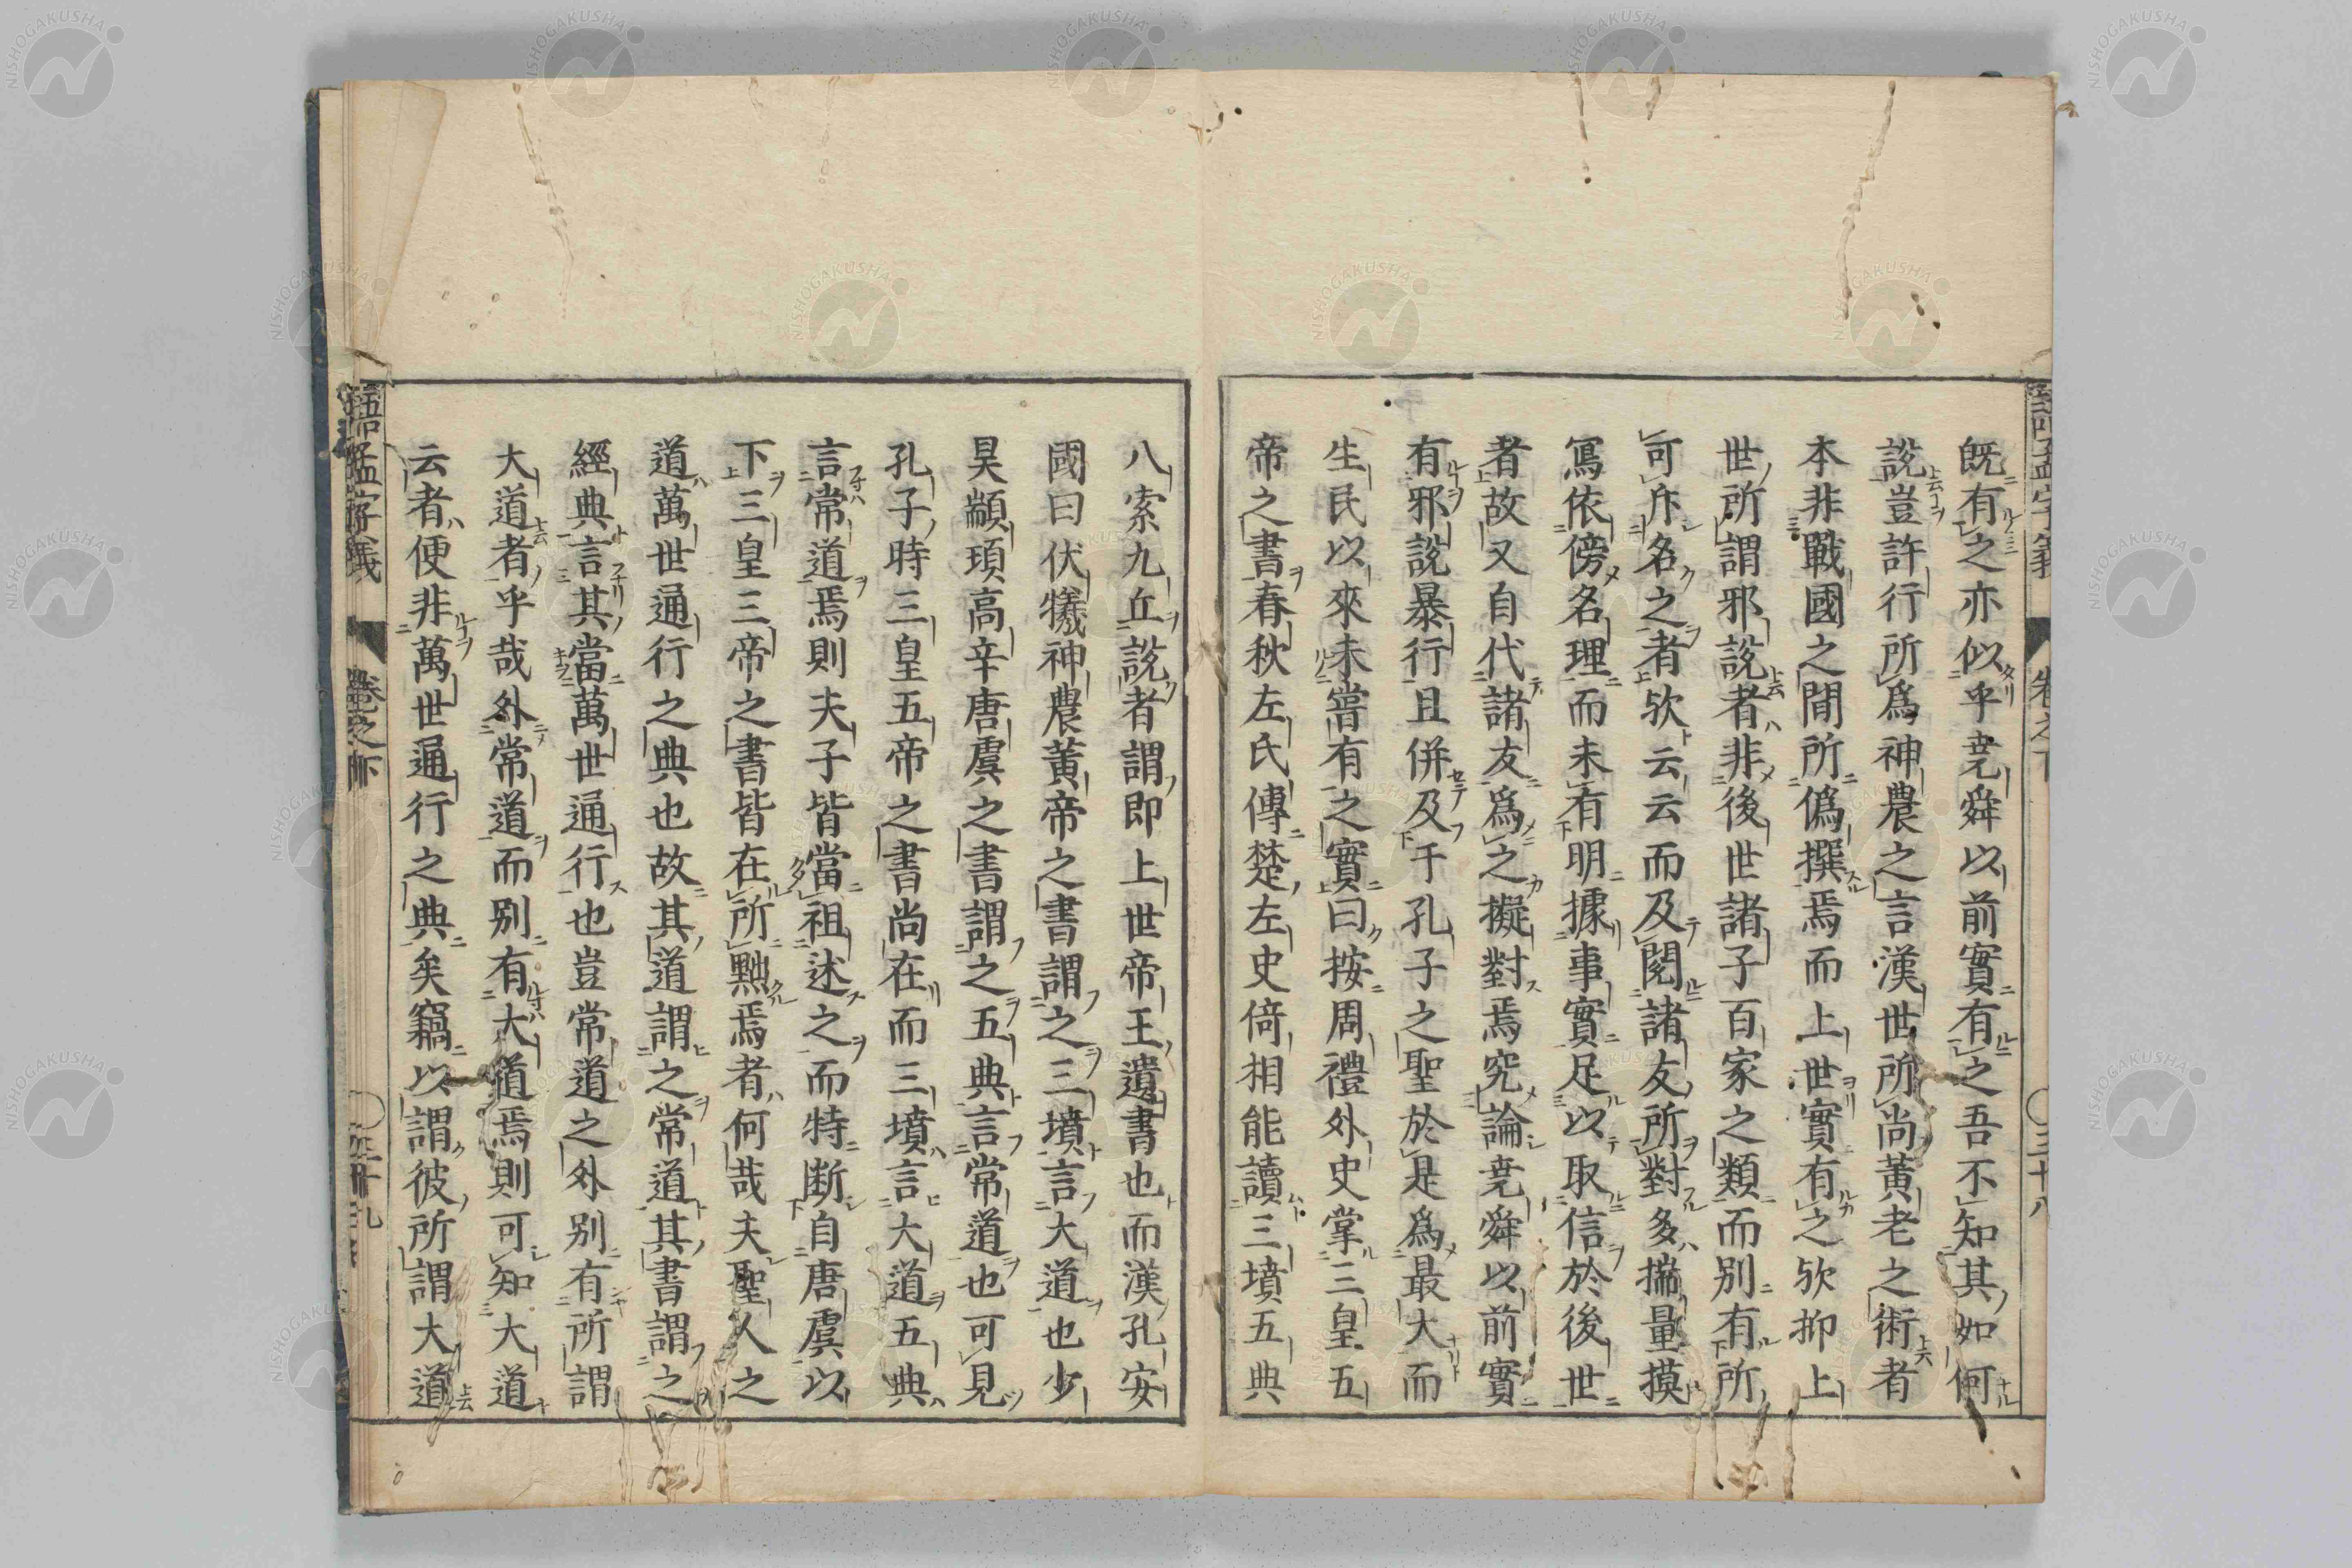 既有之亦似乎堯舜以前實有之吾不知其如何
說豈許行所爲神農之言漢世所尚黃老之術者
本非戰國之間所僞撰焉而上世實有之歟抑上
世所謂邪說者非後世諸子百家之類而別有所
可斥名之者歟云云而及閱諸友所對多揣量摸
寫依傍名理而未有明據事實足以取信於後世
者故又自代諸友爲之擬對焉究論堯舜以前實
有邪說暴行且併及于孔子之聖於是爲最大而
生民以來未嘗有之實曰按周禮外史掌三皇五
帝之書春秋左氏傳楚左史倚相能讀三墳五典
八索九丘說者謂即上世帝王遺書也而漢孔安
國曰伏犧神農黃帝之書謂之三墳言大道也少
昊顓頊高辛唐虞之書謂之五典言常道也可見
孔子時三皇五帝之書尚在而三墳言大道五典
言常道焉則夫子皆當祖述之而特断自唐虞以
下三皇三帝之書皆在所黜焉者何哉夫聖人之
道萬世通行之典也故其道謂之常道其書謂之
經典言其當萬世通行也豈常道之外別有所謂
大道者乎哉外常道而別有大道焉則可知大道
云者便非萬世通行之典矣竊以謂彼所謂大道
語孟字義 卷之下
三十八
NISHOGAKUSHA